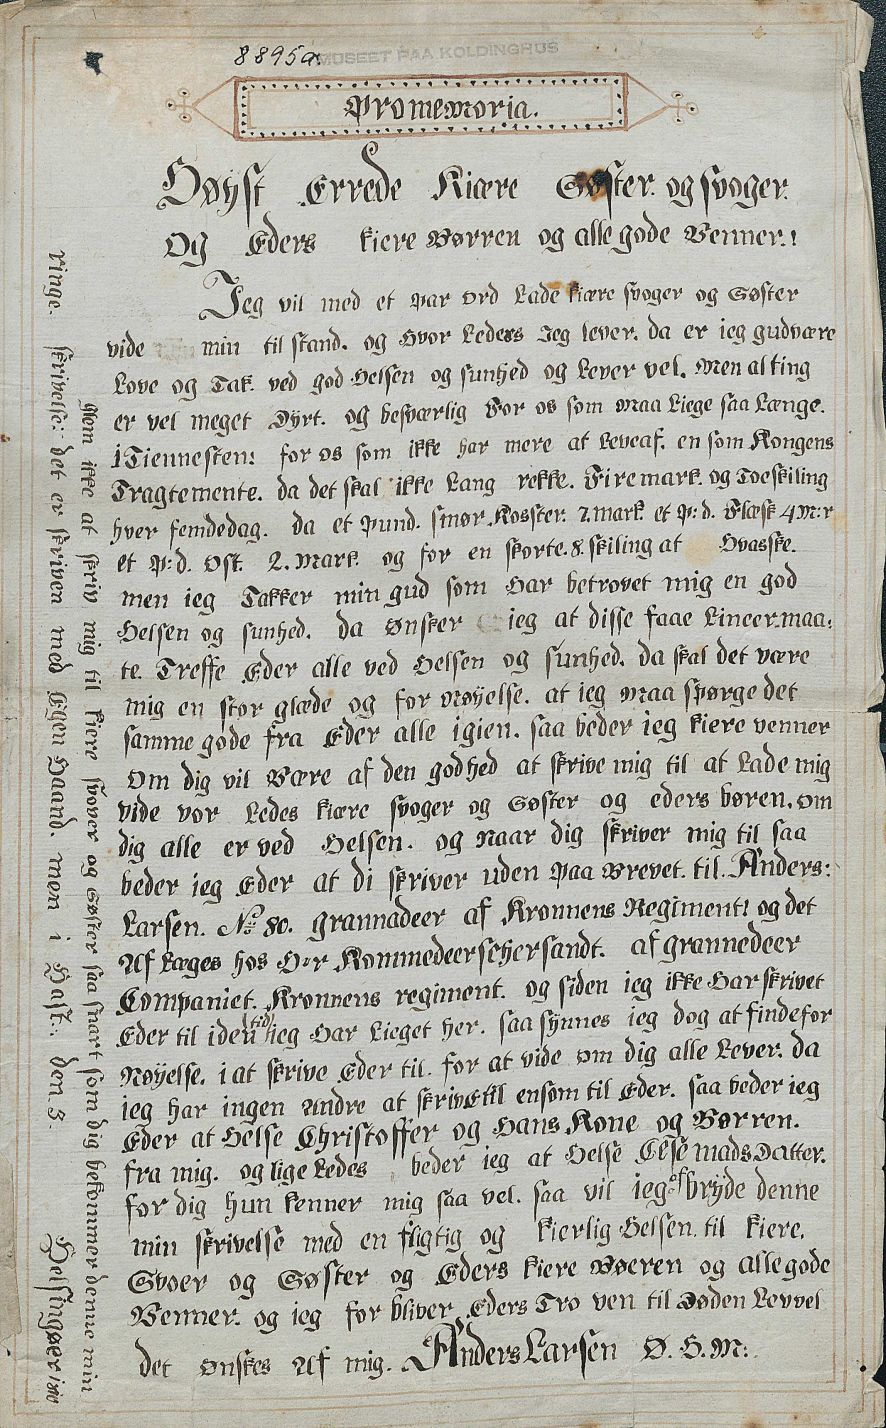 8895a.
MUSEET PAA KOLDINGHUS
Promemoria.
Høyst Errede Kiære Søster. og svoger.
Og Eders kiere Børren og alle gode Venner.!
Jeg vil med et par ord Lade kiære svoger og Søster
vide min til stand. og Hvor Leders Jeg lever. da er ieg gudvære
Love og Tak. ved god Helsen og sunhed og Lever vel. Men alting
er vel meget Dyrt. og besværlig For os som Maa Liege saa Længe.
i Tiennesten: for os som ikke har mere at Leveaf. en som Kongens
Tragtemente. da det skal ikke Lang rekke. Fire mark. og Toeskiling
hver femdedag. da et Pund. smør Kosster. 7. mark. et P:d. Flæsk 4 M:r
et P:d. Ost. 2. Mark. og for en skorte. 8. skiling at Hvasske.
men ieg Takker min gud som Har betrovet mig en god
Helsen og sunhed. da Ønsker ieg at disse faae Lineer. maa:
te. Treffe Eder alle ved Helsen og sunhed. da skal det være
mig en stor glæde og for Nøyelse. at ieg Maa spørge det
samme gode fra Eder alle igien. saa beder ieg kiere venner
Om dig vil Være af den godhed at skrive mig til at Lade mig
vide vor Ledes kiære svoger og Søster og eders børen. om
dig alle er ved Helsen. og Naar dig skriver mig til saa
beder ieg Eder at di skriver uden Paa Brevet. til. Anders:
Larsen. No 80. grannadeer af Kronnens Regiment! og det
Af Læges hos H:r Kommedeerschersandt. af grannedeer
Companiet. Kronnens regiment. og siden ieg ikke Har skrivet
Eder til iden (tid) ieg Har Lieget her. saa synnes ieg dog at finde for
Nøyelse. i at skrive Eder til. for at vide om dig alle Lever. da
ieg har ingen Andre at skrive til ensom til Eder. saa beder ieg
Eder at Helse Christoffer og Hans Kone og Børren.
fra mig. og lige Ledes beder ieg at Helse Else Mads Datter.
for dig hun kenner mig saa vel. saa vil ieg af bryde denne
min skrivelse med en fligtig og kierlig Helsen. til kiere.
Svoer og Søster og Eders kiere Bøeren og alle gode
Venner. og ieg for bliver Eders Tro ven til Døden Levvel
det Ønskes Af mig. Anders Larsen Ø. H. M:
glem ikke at skriv mig til kiere svover og Søster saa snart som dig bekommer denne min
ringe. skrivelse: det er skriven med Egen Haand. men i Hast: den 8. Helsingøer